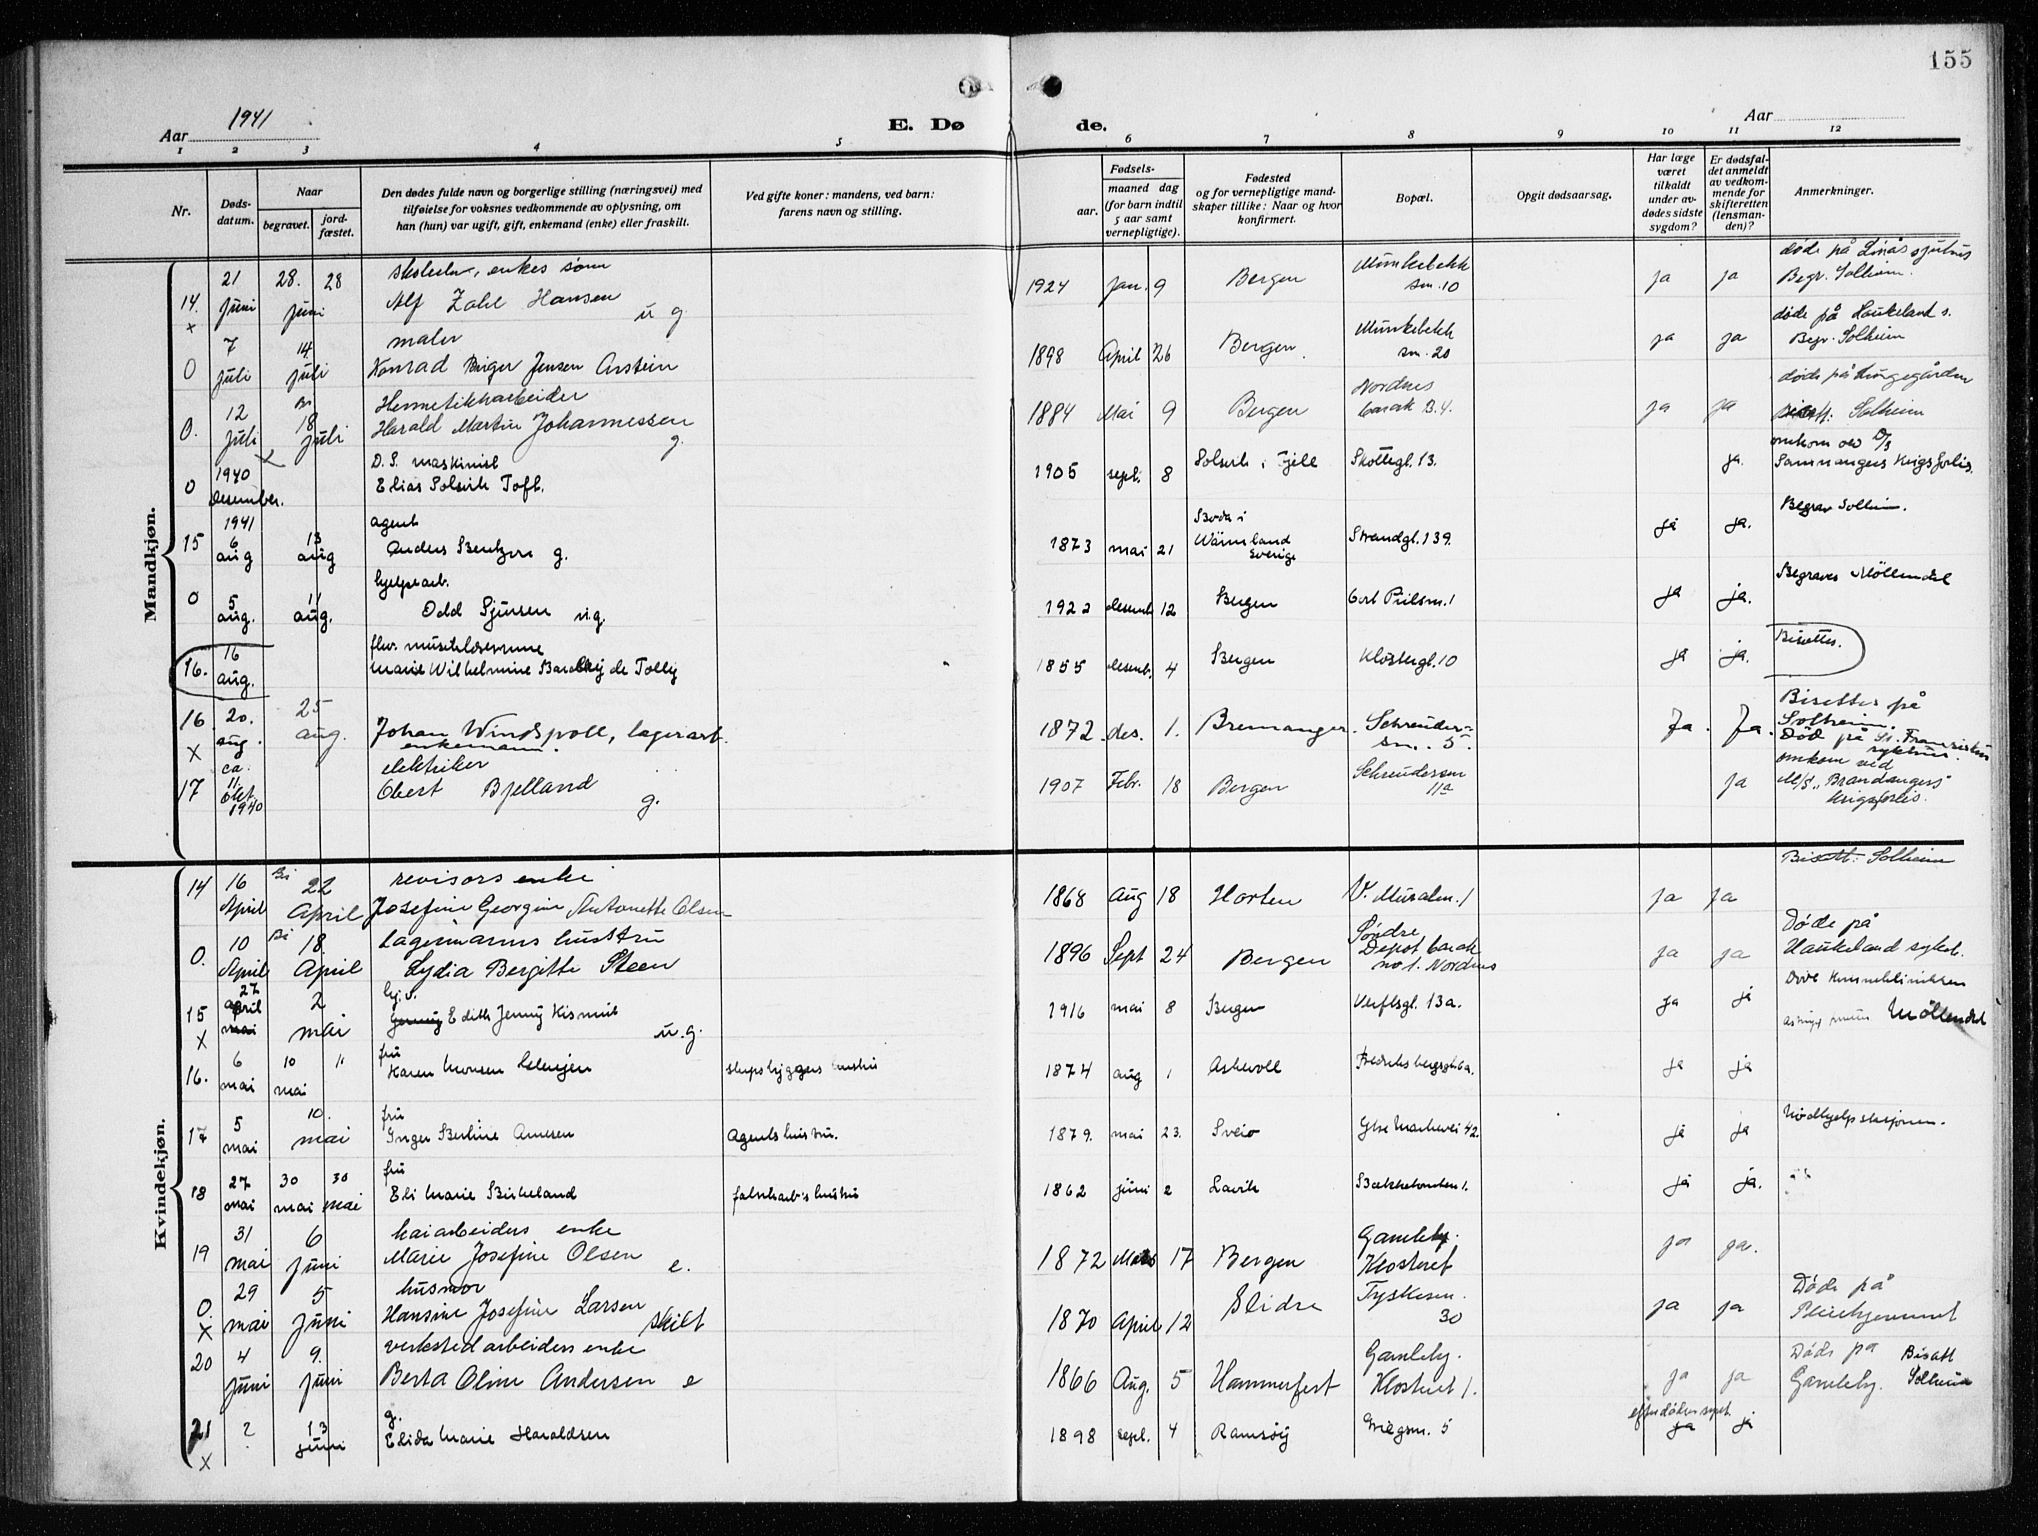 155
Aar 1941
E. Dø de.
Aar
1 2 3 4 5 6 7 8 9 10 11 12
Nr.
Døds-
datum.
Naar
begravet.
jord-
fæstet.
Den dødes fulde navn og borgerlige stilling (næringsvei) med
tilføielse for voksnes vedkommende av oplysning, om
han (hun) var ugift, gift, enkemand (enke) eller fraskilt.
Ved gifte koner: mandens, ved barn:
farens navn og stilling.
Fødsels-
aar.
maaned dag
(for barn indtil
5 aar samt
vernepligtige).
Fødested
og for vernepligtige mand-
skaper tillike: Naar og hvor
konfirmert.
Bopæl.
Opgit dødsaarsag.
Har læge
været
tilkaldt
under av-
dødes sidste
sygdom?
Er dødsfal-
det anmeldt
av vedkom-
mende for
skifteretten
(lensman-
den)?
Anmerkninger.
Mandkjøn.
14. x 21 juni 28. juni 28 enkes søn
Alf Zahl Hansen u g
1924 Jan. 9 Bergen Munkebekk sm. 10 ja ja døde på
Begr. Solheim.
0 7 juli 14 juli maler
Konrad Birger Jensen Arstein
1898 April 26 Bergen Munkebekk sm. 20 ja ja døde på Haukeland s.
Begr. Solheim
0. 12 juli Bi 18 juli Hermetikkarbeider
Harald Martin Johannessen g.
1884 Mai 9 Bergen Nordnes barak B.4. ja ja døde på Kongegården
Solheim
0 1940 desember. D.S. maskinist
Elias Solsvik Toft.
1905 sept. 8 Solsvik i Fjell Skottegt. 13. ja omkom ved D/S
Sammangers krigsforlis.
15 1941 6 aug 13 aug agent
Anders Bentzen g.
1873 mai 21 Boda i Wärmland Sverige Strandgt. 139. ja ja. Begrav Solheim.
0 5 aug. 11 aug. hjelpearb.
Odd Sjursen u.g.
1922 desemb 12 Bergen Cort Piilsm. 1 ja ja. Begraves Møllendal
16. 16 aug. fhv. musiklærerinne
Marie Wilhelmine Barclay de Tolly
1855 desemb. 4 Bergen Klostergt. 10 ja ja. Bisettes.
16 x 20. aug. 25 aug. Johan Windspoll, lagerarb.
enkemann.
1872. des. 1. Bremanger. Schreuder-
sm. 5. Ja. Ja. Bisettes på
Solheim.
Død på St. Franziskus
sykehus.
17 ca. 11 okt. 1940 elektriker
Obert Bjelland g.
1907 Febr. 18 Bergen Schreudersm 11a ja omkom ved
M/S "Brandanger's"
krigsforlis.
Kvindekjøn.
14 16 April Bi 22 April revisors enke
Josefine Georgine Antonette Olsen
1868 Aug 18 Horten V. Muralm. 1 ja ja Bisatt. Solheim
0. 10 April Bi 18. April Lagermanns hustru
Lydia Bergitte Steen
1896 Sept 24 Bergen Søndre
Depot barak
no 1. Nordnes ja ja Døde på
Haukeland sykeh.
15 x 27 april mai 2 mai hj.v.
Jenny Edith Jenny Kismul u.g.
1916 mai 8 Bergen Verftsgt. 13a. ja ja Døde Kvinneklinikken
Møllendal
16. 6 mai 10 mai 11 fru
Karen Monsen
skipsbyggers hustru
1874 aug 1 Askvoll Fredriksbergsgt. 6a. ja ja
17 5 mai 10. mai fru
Inger Berline Arnesen
Agents hustru.
1879. mai 23. Sveio 42. ja ja Nødhjelpstasjonen.
18 27 mai 30 mai 30 mai fru
Eli Marie Birkeland
fabrikarb's hustru
1862 juni 2 Lavik Bakketomten 1. ja ja.
19 31 mai 6 juni kaiarbeiders enke
Marie Josefine Olsen e.
1872 17 Bergen Gamleby.
Klosteret ja ja.
0. x 29 mai 5 juni husmor
Hansine Josefine Larsen skilt
1870 April 12 Slidre Tyskesm. 30 ja ja Døde på
Pleiehjemmet
20 4 juni 9. juni verkstedarbeiders enke
Berta Oline Andersen e
1866 Aug. 5 Hammerfest Gamleby.
Klosteret 1. ja ja Døde på Bisatt
Gamleby. Solheim
21 x ? 13 juni g.
Elida Marie Haraldsen
1898 sept. 4 Ramsøy Griegsm. 5 ja ja